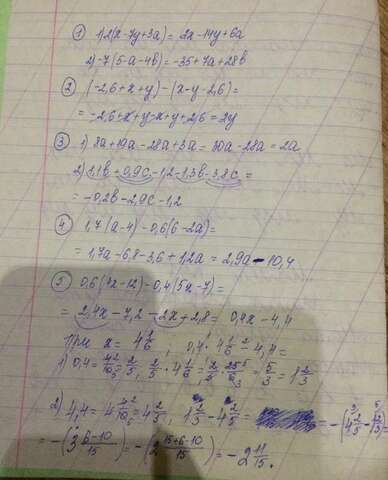 ① 1) 2(x-7y+3a)= 2x-14y+6a
2) -7(5-a-4b)= -35+7a+28b
② (-2,6+x+y)-(x-y-2,6)=
= -2,6+x+y-x+y+2,6=2y
③ 1) 8a+19a-28a+3a= 30a-28a=2a
2) 1,1b+0,9c-1,2-1,3b-3,8c=
= -0,2b-2,9c-1,2
④ 1,7(a-4)-0,6(6-2a)=
= 1,7a-6,8-3,6+1,2a = 2,9a-10,4
⑤ 0,6(4x-12)-0,4(5x-7)=
= 2,4x-7,2-2x+2,8= 0,4x-4,4
при x=4 1/6 ; 0,4·4 1/6-4,4=
1) 0,4= 4/10=2/5; 2/5·4 1/6=2/5·25/6=5/3=1 2/3
2) 4,4=4 4/10=4 2/5; 1 2/3-4 2/5= -(4 2/5-5/3)=
= -(3 6-10/15)= -(2 15+6-10/15)= -2 11/15.